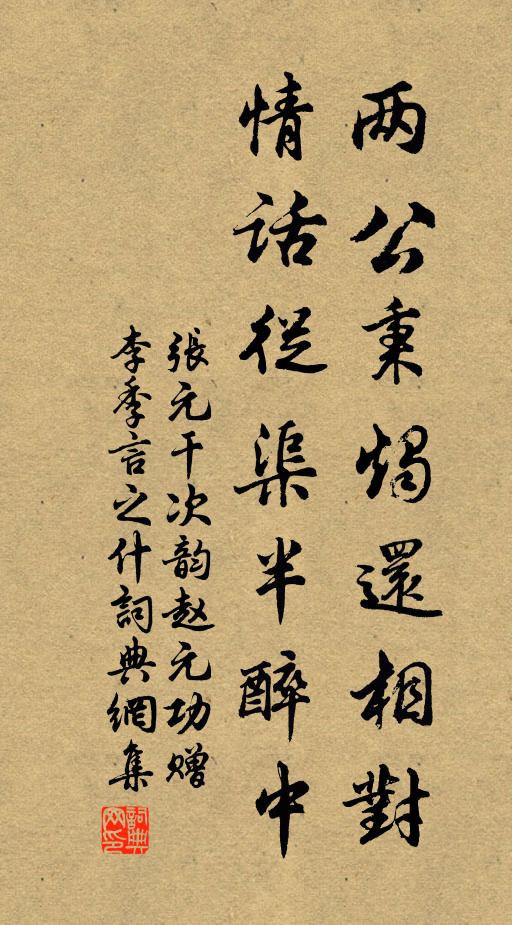 两公秉燭還相對
情話從渠半醉中
張元干次韵赵元功赠
李季言之什詞典網集
詞典网印